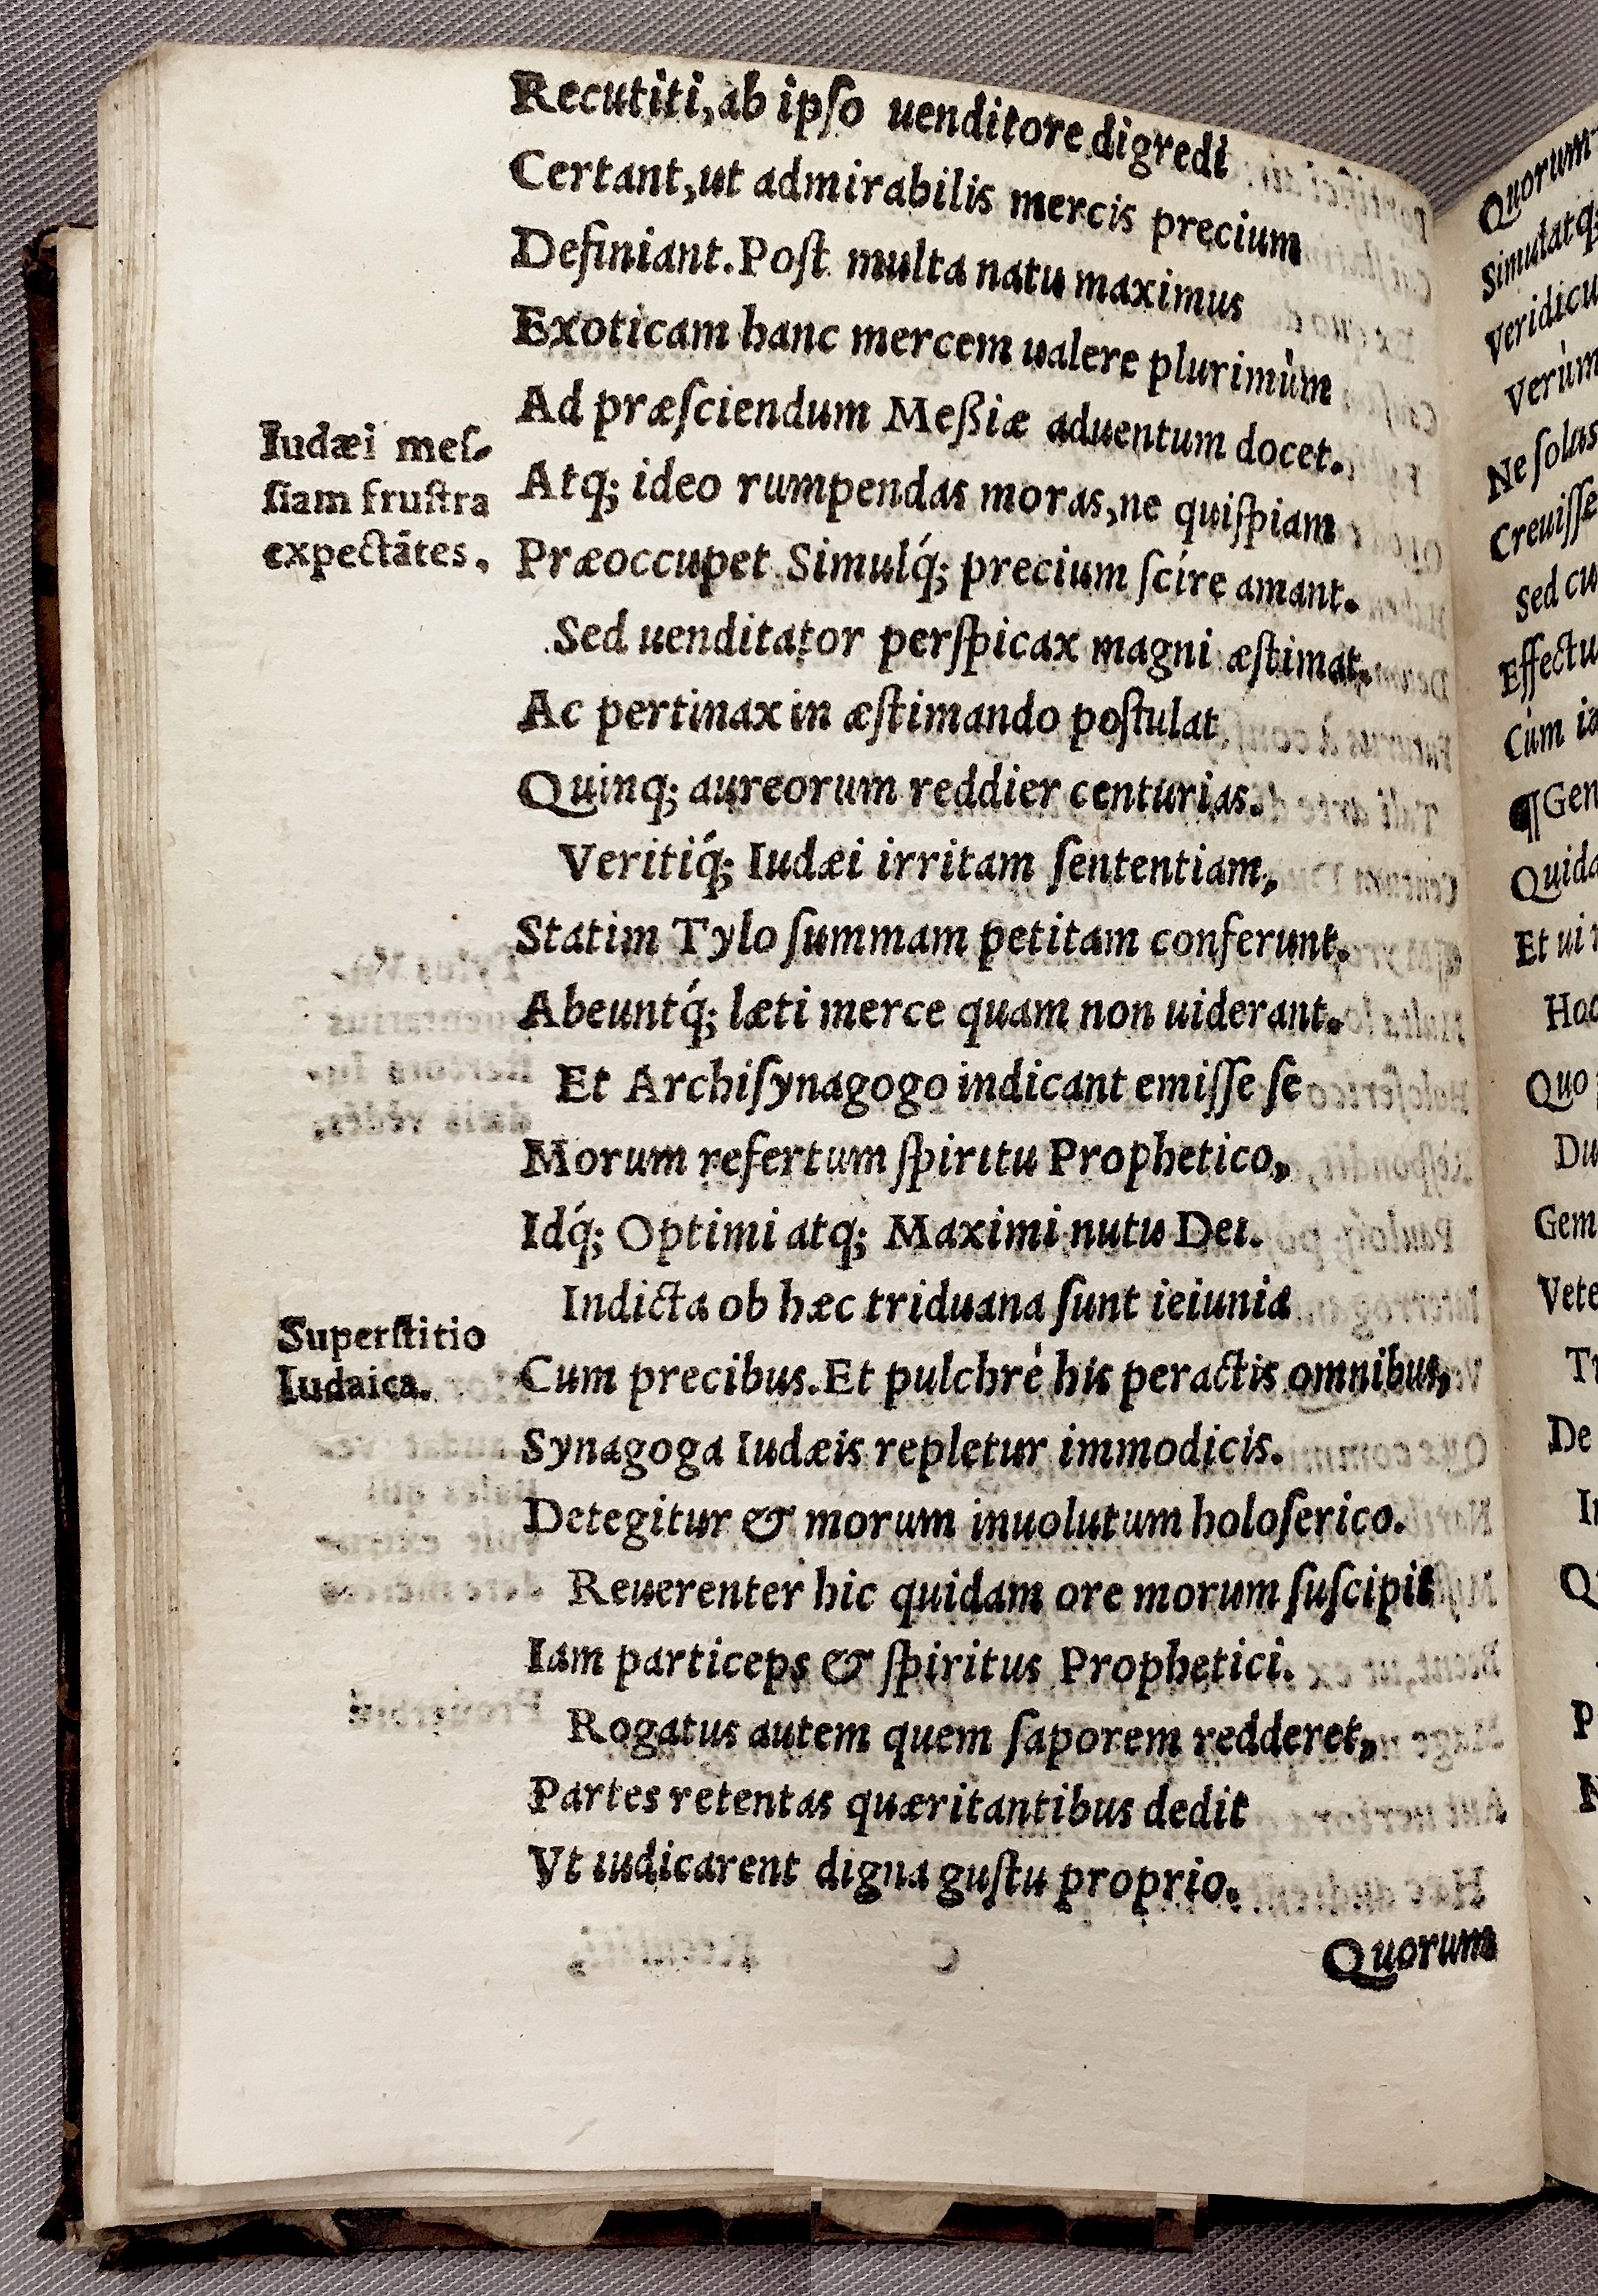 Recutiti, ab ipſo uenditore digredi
Certant, ut admirabilis mercis precium
Definiant. Poſt multa natu maximus
Exoticam hanc mercem ualere plurimùm
Ad præſciendum Meßiæ aduentum docet.
Iudæi meſ-
ſiam fruſtra
expectãtes.
Atq; ideo rumpendas moras, ne quiſpiam
Præoccupet. Simulq́; precium ſcire amant.
Sed uenditator perſpicax magni æſtimat,
Ac pertinax in æſtimando poſtulat
Quinq; aureorum reddier centurias.
Veritiq́; Iudæi irritam ſententiam,
Statim Tylo ſummam petitam conferunt,
Abeuntq́; læti merce quam non uiderant.
Et Archiſynagogo indicant emiſſe ſe
Morum refertum ſpiritu Prophetico,
Idq́; Optimi atq; Maximi nutu Dei.
Indicta ob hæc triduana ſunt ieiunia
Superſtitio
Iudaica.
Cum precibus. Et pulchrè his peractis omnibus,
Synagoga Iudæis repletur immodicis.
Detegitur & morum inuolutum holoſerico.
Reuerenter hic quidam ore morum ſuſcipit
Iam particeps & ſpiritus Prophetici.
Rogatus autem quem ſaporem redderet,
Partes retentas quæritantibus dedit
Vt iudicarent digna guſtu proprio.
Quorum
Quorum
Simulatq;
Veridicu
Verùm
Ne ſolus
Creuiſſe
Sed cu
Effectu
Cùm ia
¶ Gen
Quida
Et ui
Hoc
Quo
Du
Gem
Vete
Tr
De